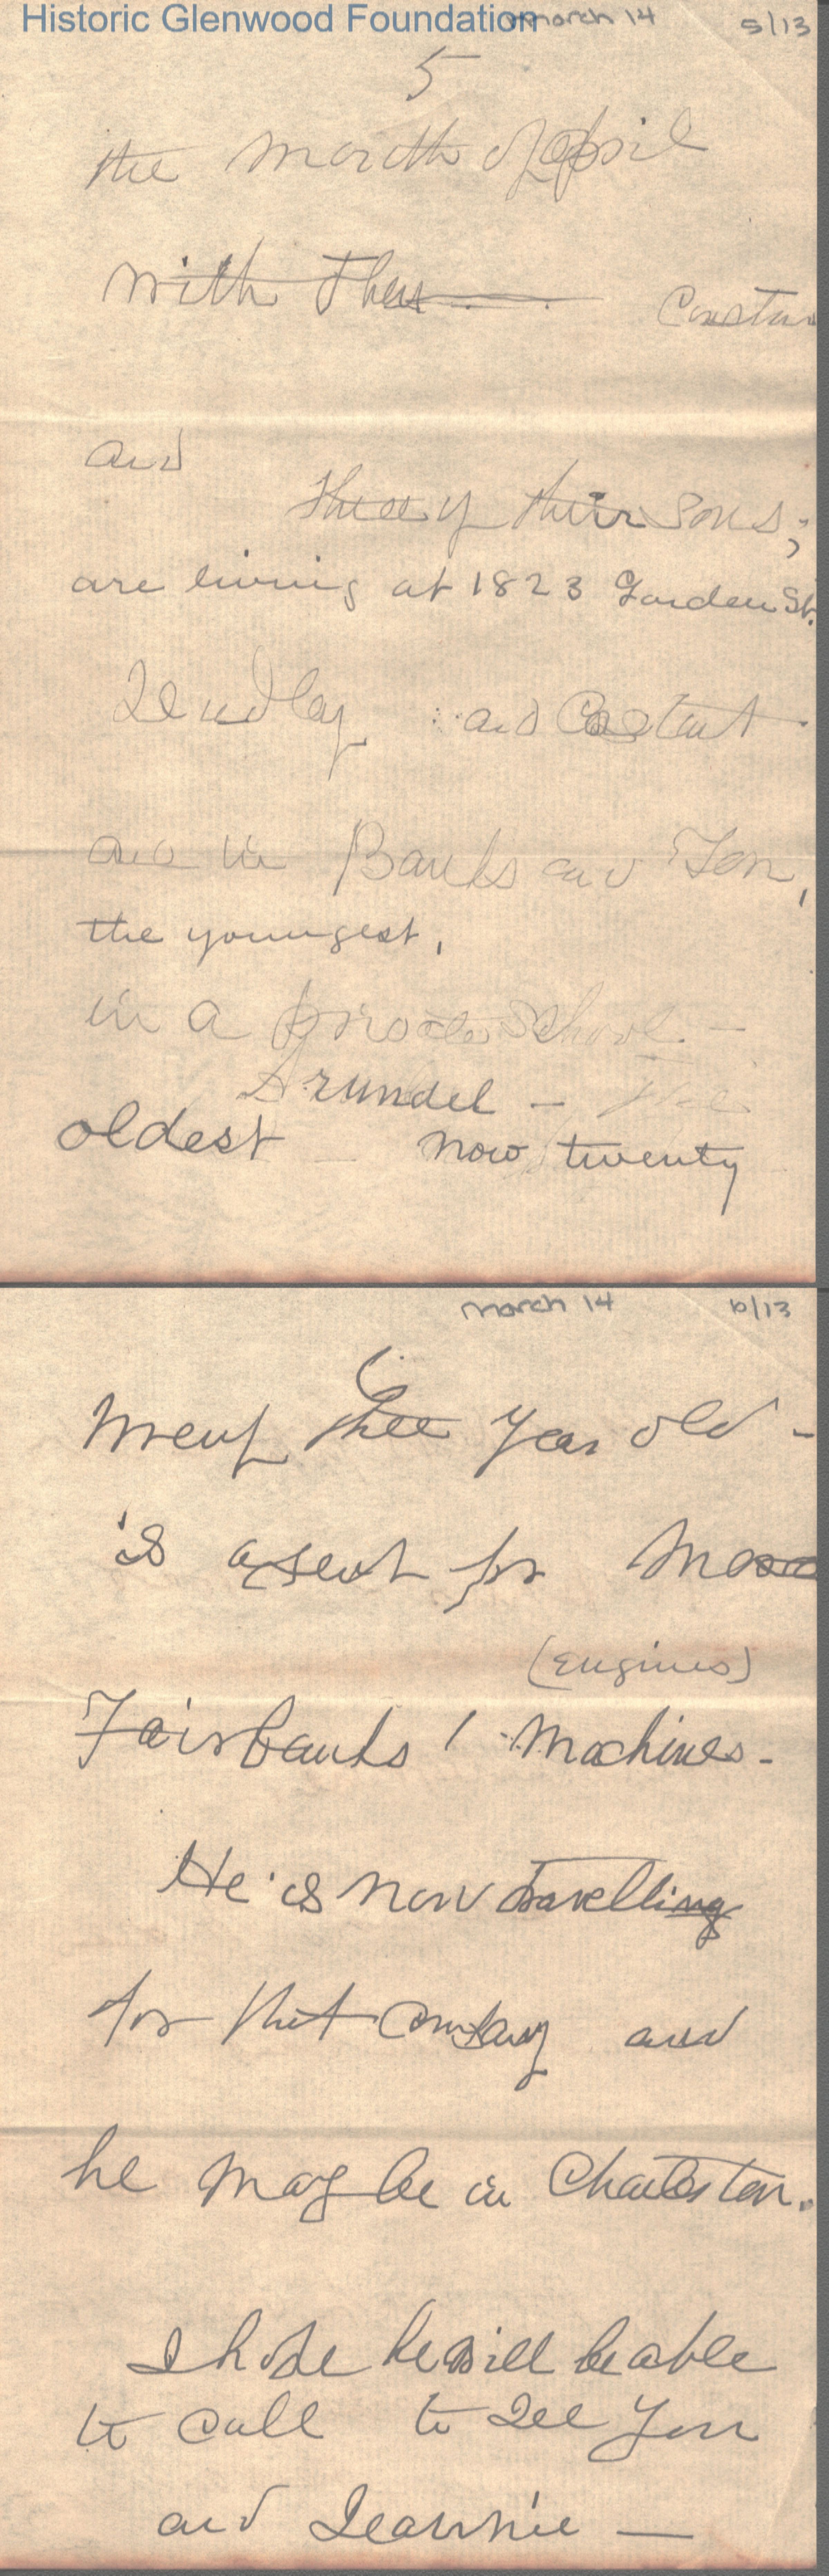 Historic Glenwood Foundation
march 14 5/13
5
the month of April
with them
and
three of their sons;
are living at 1823 Garden St.
and
are in Banks and
the youngest,
in a private School -
Arundel - The
oldest now twenty
march 14 6/13
6
three year old -
is agent for
(Engines)
Fairbanks' Machines-
He is now travelling
for that Company and
he may be in Charleston.
I hope he will be able
to call to see you
and Jeannie —